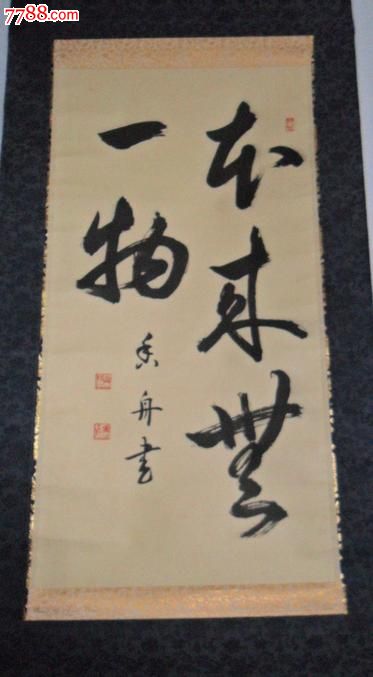 7788.com
本来無
一物
香舟書